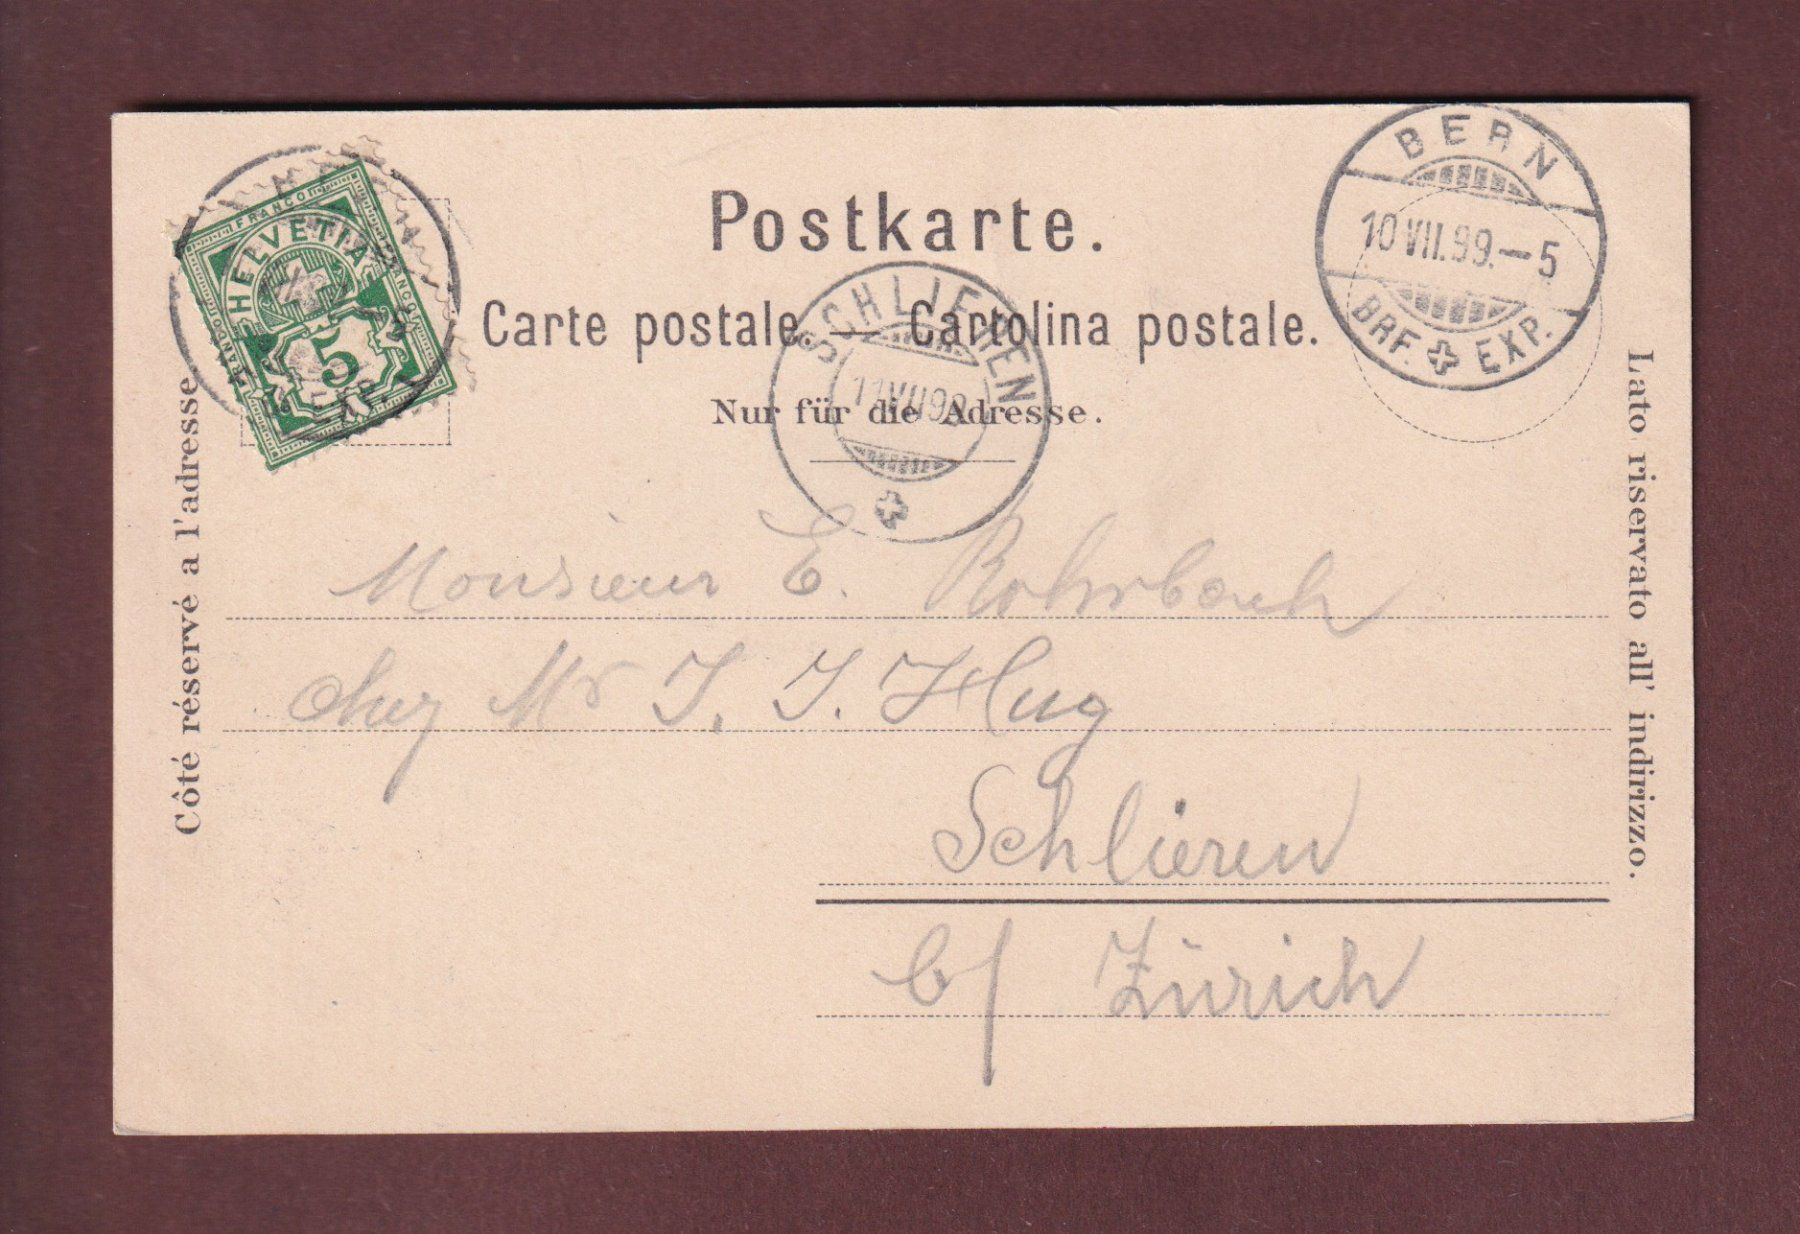 FRANCO
HELVETIA
FRANCO
FRANCO
5
Postkarte.
BERN
10 VII.99.—5
BRF. EXP.
Carte postale. — Cartolina postale.
SCHLIEREN
11 VII 99
Nur für die Adresse.
Côté réservé a l'adresse
Lato riservato all' indirizzo.
Monsieur E. Rohrbach
chez Mr J. J. Hug
Schlieren
b/ Zürich